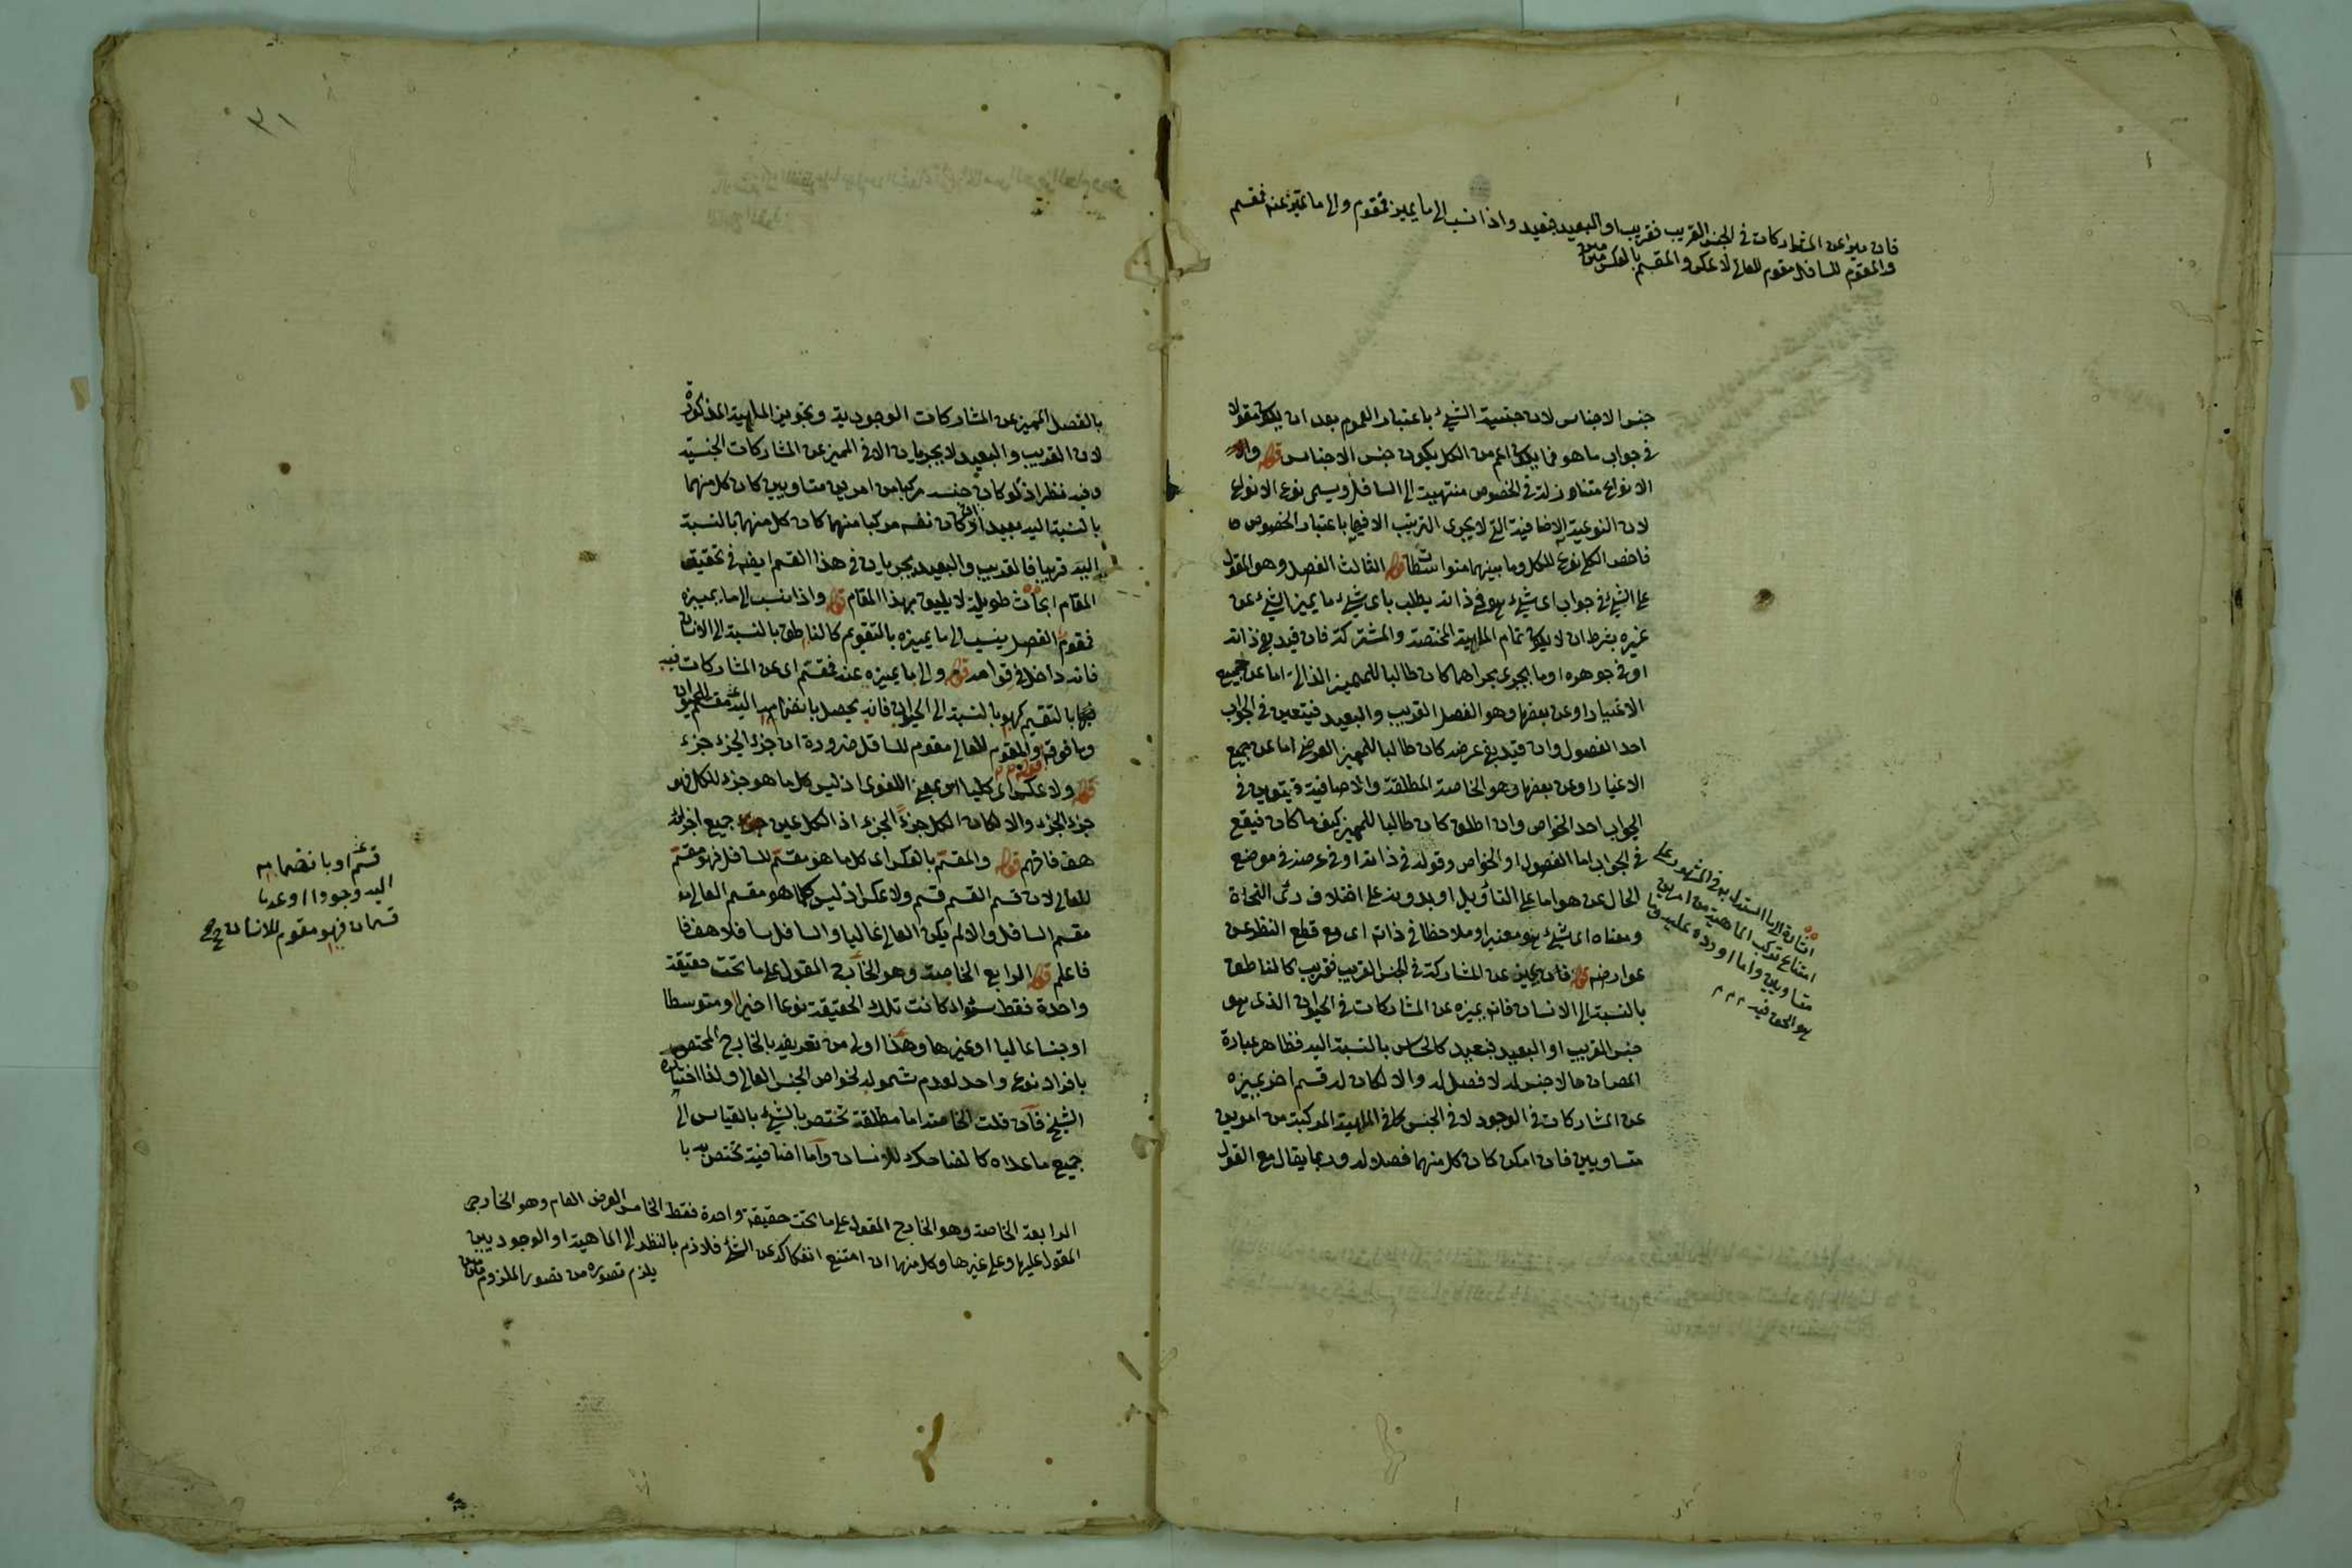 فان ميزا عن المشاركات فى الجنس القريب فقريب او البعيد فبعيد واذا نسب الى ما يميز فمقوم والى ما يميز عنه فمقسم
والمقوم للسافل مقوم للعالى لا عكس والمقسم بالعكس متن
جنس الاجناس لان جنسية الشئ باعتبار العموم بعد ان يكون مقولا
فى جواب ما هو فما يكون اعم من الكل يكون جنس الاجناس قوله
الانواع متنازلة فى الخصوص منتهية الى السافل ويسمى نوع الانواع
لان النوعية الاضافية التى لا يجرى الترتيب الا فيها باعتبار الخصوص
فاخص الكل نوع للكل وما بينهما متوسطات قوله الثالث الفصل وهو المقول
على الشئ فى جواب اى شئ هو فى ذاته يطلب باى شئ ما يميز الشئ عن
غيره بشرط ان لا يكون تمام الماهية المختصة والمشتركة فان قيد بفى ذاته
او فى جوهره او ما يجرى مجراهما كان طالبا للمميز الذاتى اما عن جميع
الاغيار او عن بعضها وهو الفصل القريب والبعيد فيتعين فى الجواب
احد الفصول وان قيد بفى عرضه كان طالبا للمميز العرضى اما عن جميع
الاغيار او عن بعضها وهو الخاصة المطلقة والاضافية فيتعين فى
الجواب احد الخواص وان اطلق كان طالبا للمميز كيف ما كان فيقع
فى الجواب اما الفصول او الخواص وقوله فى ذاته او فى عرضه فى موضع
الحال عن هو اما على التأويل او بدونه على اختلاف رئى النحاة
ومعناه اى شئ هو معتبرا وملاحظا فى ذاته اى مع قطع النظر عن
عوارضه قوله فان يميز عن المشاركة فى الجنس القريب فقريب كالناطق
بالنسبة الى الانسان فانه يميزه عن المشاركات فى الحيوان الذى هو
جنس القريب او البعيد فبعيد كالحساس بالنسبة اليه فظاهر عبارة
المصـ ان ما لا جنس له لا فصل له والا لكان له قسم اخر يميزه
عن المشاركات فى الوجود لا فى الجنس كما فى الماهية المركبة من امرين
متساويين فان امكن كان كل منهما فصلا له وربما يقال مع القول
اشارة الى ما استدل به فى المشهور على
امتناع تركب الماهية من امرين
متساويين واما اورده عليه وما
هو الحق فيه
٣١
بالفصل المميز عن المشاركات الوجودية وتجويز الماهية المذكورة
لان القريب والبعيد لا يجريان الا فى المميز عن المشاركات الجنسية
وفيه نظر اذ لو كان جنسه مركبا من امرين متساويين كان كل منهما
بالنسبة اليه بعيدا ولو كان نفسه مركبا منهما كان كل منهما بالنسبة
اليه قريبا فالقريب والبعيد يجريان فى هذا القسم ايضا فى تحقيق
المقام ابحاث طويلة لا يليق بهذا المقام قوله واذا نسب الى ما يميزه
فمقوم الفصل ينسب الى ما يميزه بالتقويم كالناطق بالنسبة الى الانسان
فانه داخل فى قوامه قوله والى ما يميزه عنه فمقسم اى عن المشاركات فيه
بالتقسيم كهو بالنسبة الى الحيوان فانه يحصل بانضمامه اليه
وما فوقه والمقوم للعالى مقوم للسافل ضرورة ان جزء الجزء جزء
قوله ولا عكس اى كليا اى بمعنى اللغوى اذ ليس كل ما هو جزء للكل فهو
جزء الجزء والا لكان الكل جزء الجزء اذ الكل عين جميع اجزائه
هف فافهم قوله والمقسم بالعكس اى كل ما هو مقسم للسافل فهو مقسم
للعالى لان قسم القسم قسم ولا عكس اذ ليس كلما هو مقسم العالى
مقسم السافل والا لم يكن العالى عاليا والسافل سافلا هف
فاعلم قوله الرابع الخاصة وهو الخارج المقول على ما تحت حقيقة
واحدة فقط سواء كانت تلك الحقيقة نوعا اخيرا او متوسطا
او جنسا عاليا او غيرها وهذا اولى من تعريفه بالخارج المختص
بافراد نوع واحد لعدم شموله لخواص الجنس العالى ولذا اختاره
الشيخ فان قلت الخاصة اما مطلقة تختص بالشئ بالقياس الى
جميع ما عداه كالضاحك للانسان واما اضافية تختص به با
قسم او بانضمامه
اليه وجودا او عدما
قسمان فهو مقوم للانسان
الرابعة الخاصة وهو الخارج المقول على ما تحت حقيقة واحدة فقط الخامس العرض العام وهو الخارجى
المقول عليها وعلى غيرها وكل منهما ان امتنع انفكاكه عن الشئ فلازم بالنظر الى الماهية او الوجود بين
يلزم تصوره من تصور الملزوم متن